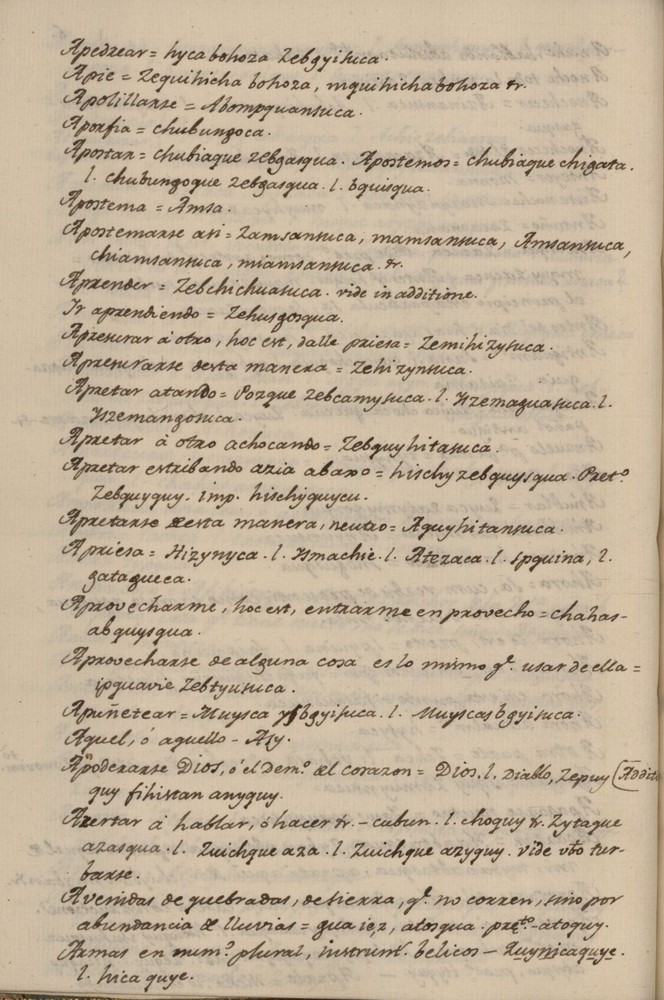 Apedrear = hyca bohoza zebgyisuca.
Apie = Zequihicha bohoza, mquihicha bohoza &r.
Apolillarse = Abompquansuca.
Aporfia = chubungoca.
Apostar = chubiaque zebgasqua. Apostemos = chubiaque chigata.
l. chubungoque zebgasqua. l. bquisqua.
Apostema = Amsa.
Apostemarse asi = Zamsansuca, mamsansuca, Amsansuca,
chiamsansuca, miamsansuca. &r.
Aprender = Zebchichuasuca. vide in additione.
Ir aprendiendo = Zehusgosqua.
Apresurar á otro, hoc est, dalle priesa = Zemihizysuca.
Apresurarse desta manera = Zehizynsuca.
Apretar atando = Pozque zebcamysuca. l. Yszemaguasuca. l.
Yszemangosuca.
Apretar á otro achocando = Zebquyhitasuca.
Apretar estribando azia abaxo = hischy zebquysqua. Pret.o
Zebquyquy. imp. hischyquycu.
Apretarse desta manera, neutro = Aquyhitansuca.
Apriesa = Hizynyca. l. Ysmachie. l. Atezaca. l. Spquina, l.
gatagueca.
Aprovecharme, hoc est, entrarme en provecho = chahas-
abquysqua.
Aprovecharse de alguna cosa es lo mismo q.e usar de ella =
ipquavie Zebtyusuca.
Apuñetear = Muysca ysbgyisuca. l. Muyscas bgyisuca.
Aquel, ó aquello - Asy.
Apoderarse Dios, ó el Dem.o del corazon = Dios. l. Diablo, Zepuy (Addit
quy fihistan anyquy.
Azertar á hablar, ó hacer &r. - cubun. l. choquy &. Zytaque
azasqua. l. Zuichque aza. l. Zuichque azyquy. vide vbo tur-
barse.
Avenidas de quebradas, de sierra, q.e no corren, sino por
abundancia de lluvias = gua iez, atosqua. pret.o - atoquy.
Armas en num.o plural, instrum.t belicos - Zuynicaquye.
l. hica quye.